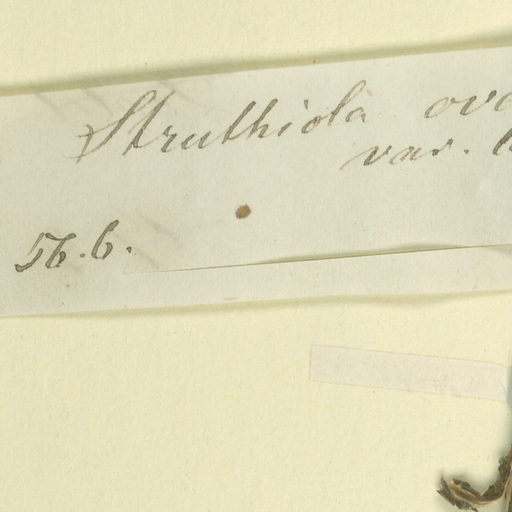 Struthiola ova
var.
56.6.